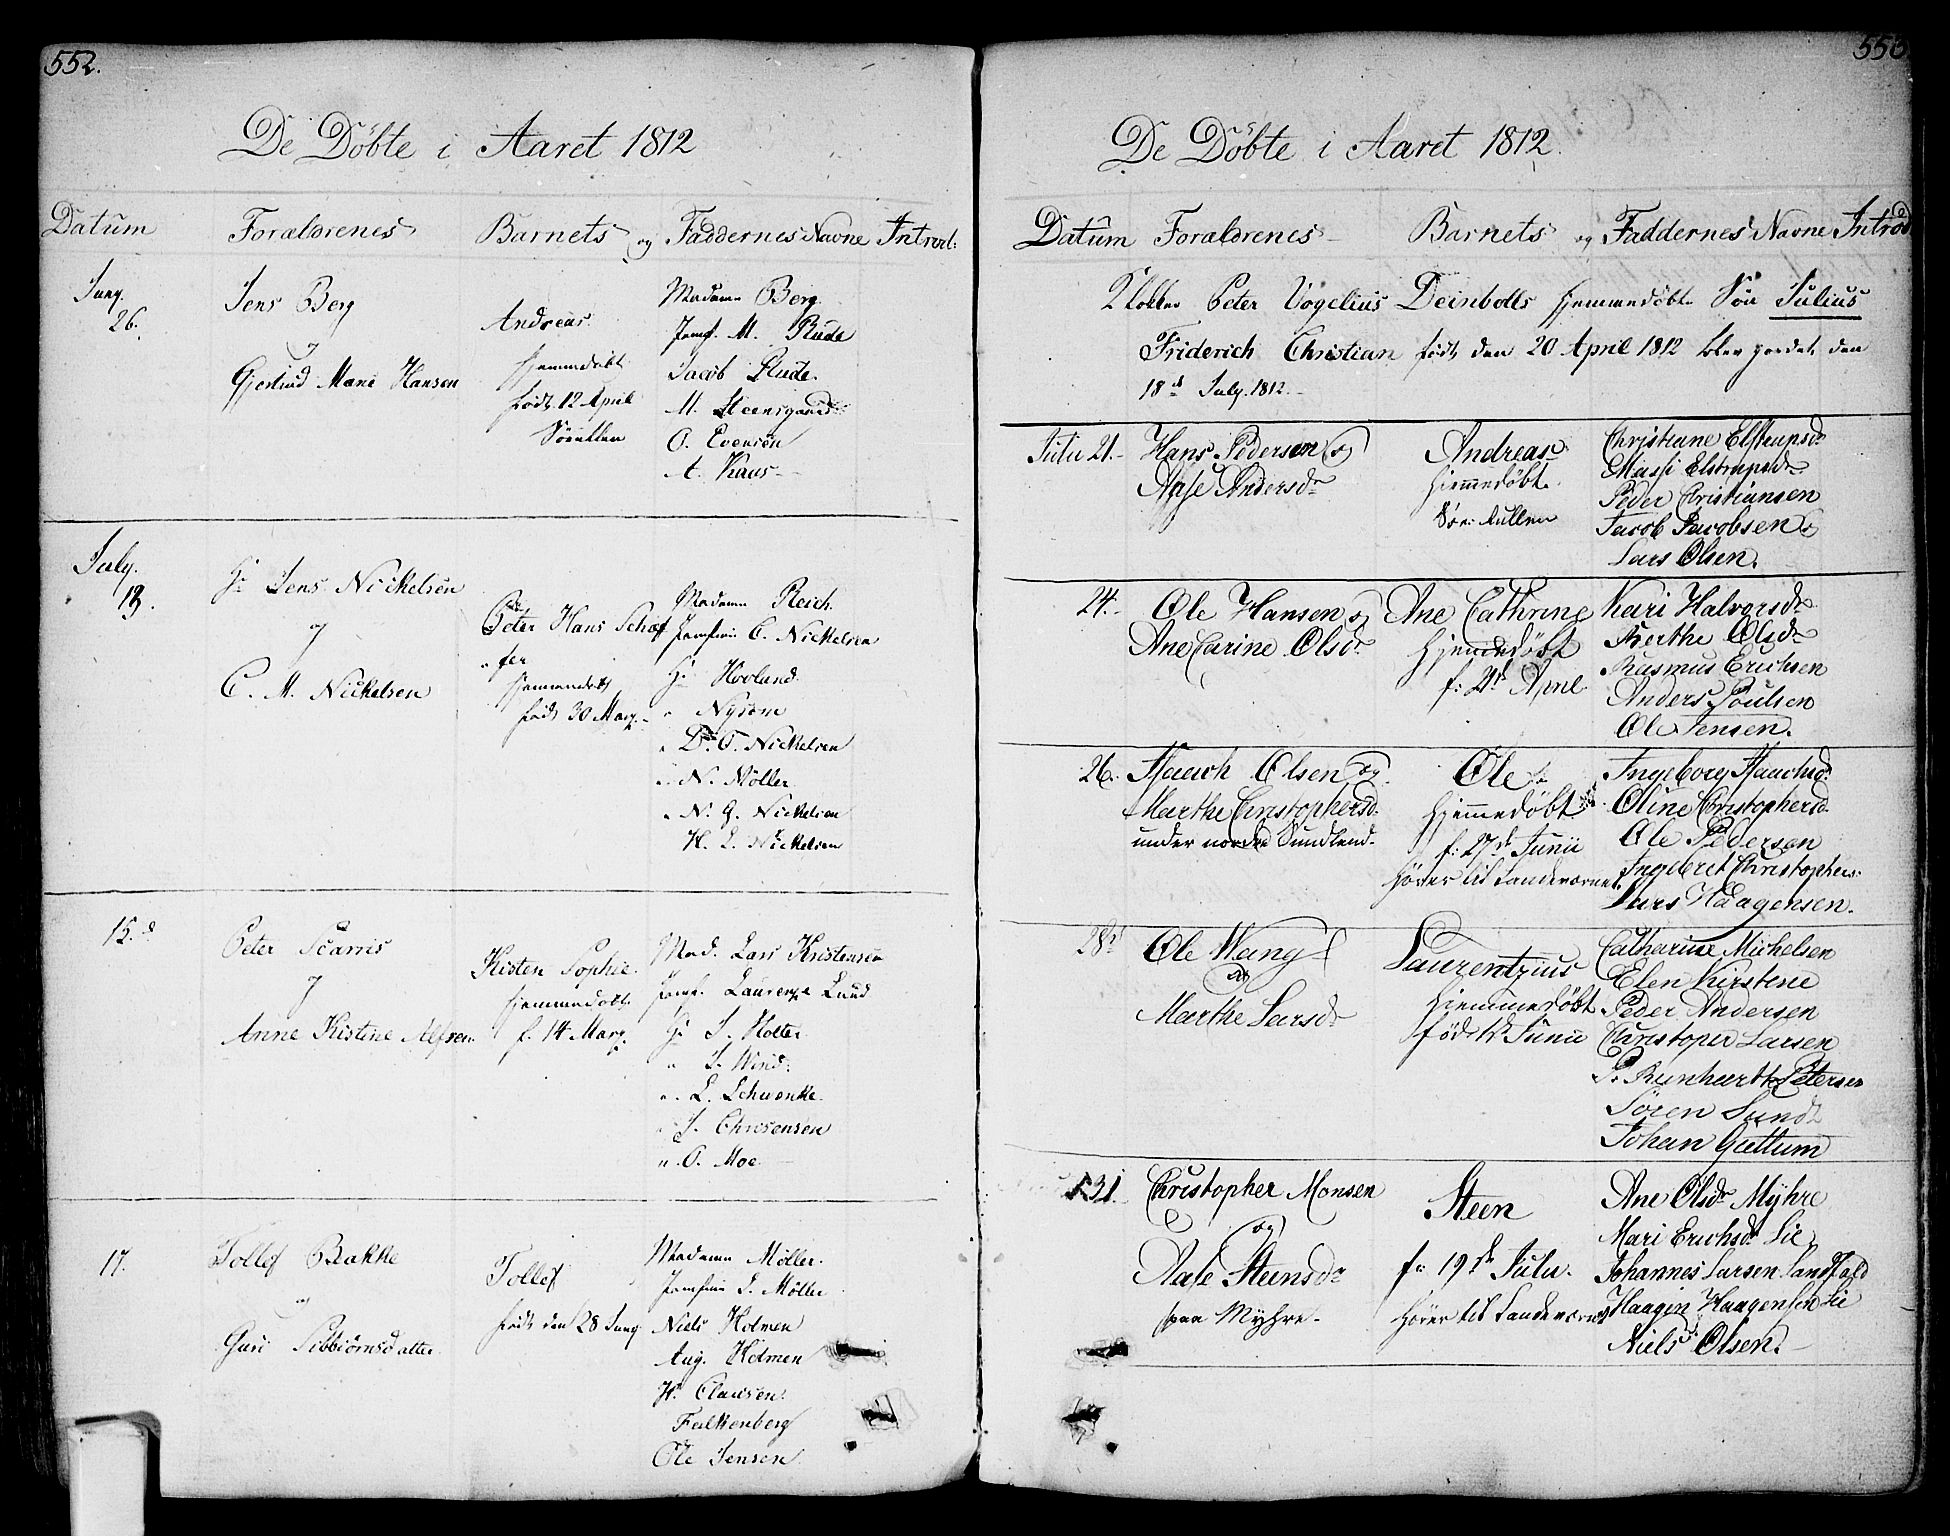 552.
De Döbte i Aaret 1812
Datum Forældrenes Barnets og Faddernes Navne Introd:
Juny.
26.
Jens Berg
og
Gjertrud Marie Hansen
Andreas
hjemmedøbt
født 12 April
Madame Berg
Jomf. M. Rude
Jacob Rude.
M. Steensgaard
O. Evensen
A. Kaus
July.
13.
Hr Jens Nickelsen
og
C. M. Nickelsen
Peter Hans Schæf
fer
hjemmedøbt
født 30 Marz.
Madame Reich
Jomfrue C. Nickelsen
Hr Hovland
" Nysom
" D. O. Nickelsen
" N. Möller
" N. G. Nickelsen
H. L. Nickelsen
15.d
Peter Scarris
og
Anne Kistine Alfsen
Kisten Sophie.
hjemmedøbt
f. 14 Marz.
Mad. Lars Kristensen
Jomf. Laurenze Lund
Hr J. Holter
" J. Wind:
" L. Schwenke.
" J. Christensen
" O. Moe
17.
Tollef Bakke
og
Guri Sibbiörnsdatter
Tollef
født den 28 Juny
Madame Möller.
Jomfrue J. Möller
Niels Holmen
Aug. Holmen
H. Clausen.
Falkenberg
Ole Jensen
De Döbte i Aaret 1812.
Datum Forældrenes Barnets og Faddernes Navne Introd
Klokker Peter Vogelius Deinbolls hjemmedøbte Søn Julius
Friderich Christian født den 20 April 1812 blev den
18d July. 1812.
Julii 21. Hans Pedersen og
Aase Andersdr
Andreas
hjemmedöbt.
Christiane Elstrupsdr
Massi Elstrupsdr
Peder Christiansen
Jacob Jacobsen og
Lars Olsen.
24. Ole Hansen og
Ane Carine Olsdr
Ane Cathrine
hjemmedöbt
f: 21d April
Kari Halvorsdr
Berthe Olsdr
Rasmus Erichsen
Anders Poulsen
Ole Jensen.
26. Haach Olsen og
Marthe Christophersd.
under nordre Sundlend.
Ole
hjemmedöbt
f: 27d Junii
hörer til Landeværnet
Ingeborg Haachsd.
Oline Christophersd.
Ole Pedersen
Ingebret Christophers:
Lars Haagensen.
28d Ole Wang
og
Marthe Larsdr
Laurentzius
hjemmedöbt
född 12 Junii
Catharine Michelsen
Elen Kirstine
Peder Andersen
Christoper Larsen
P. Runhartt Petersen
Sören Lund
Johan Gullum
31 Christopher Monsen
og
Aase Steensdr
paa Myhre.
Steen
f: 19d Julii.
hörer til Landeværnet
Ane Olsdr Myhre
Mari Erichsd. Lie
Johannes Larsen Landfald
Haagin Haagensen Lie
Niels Olsen.